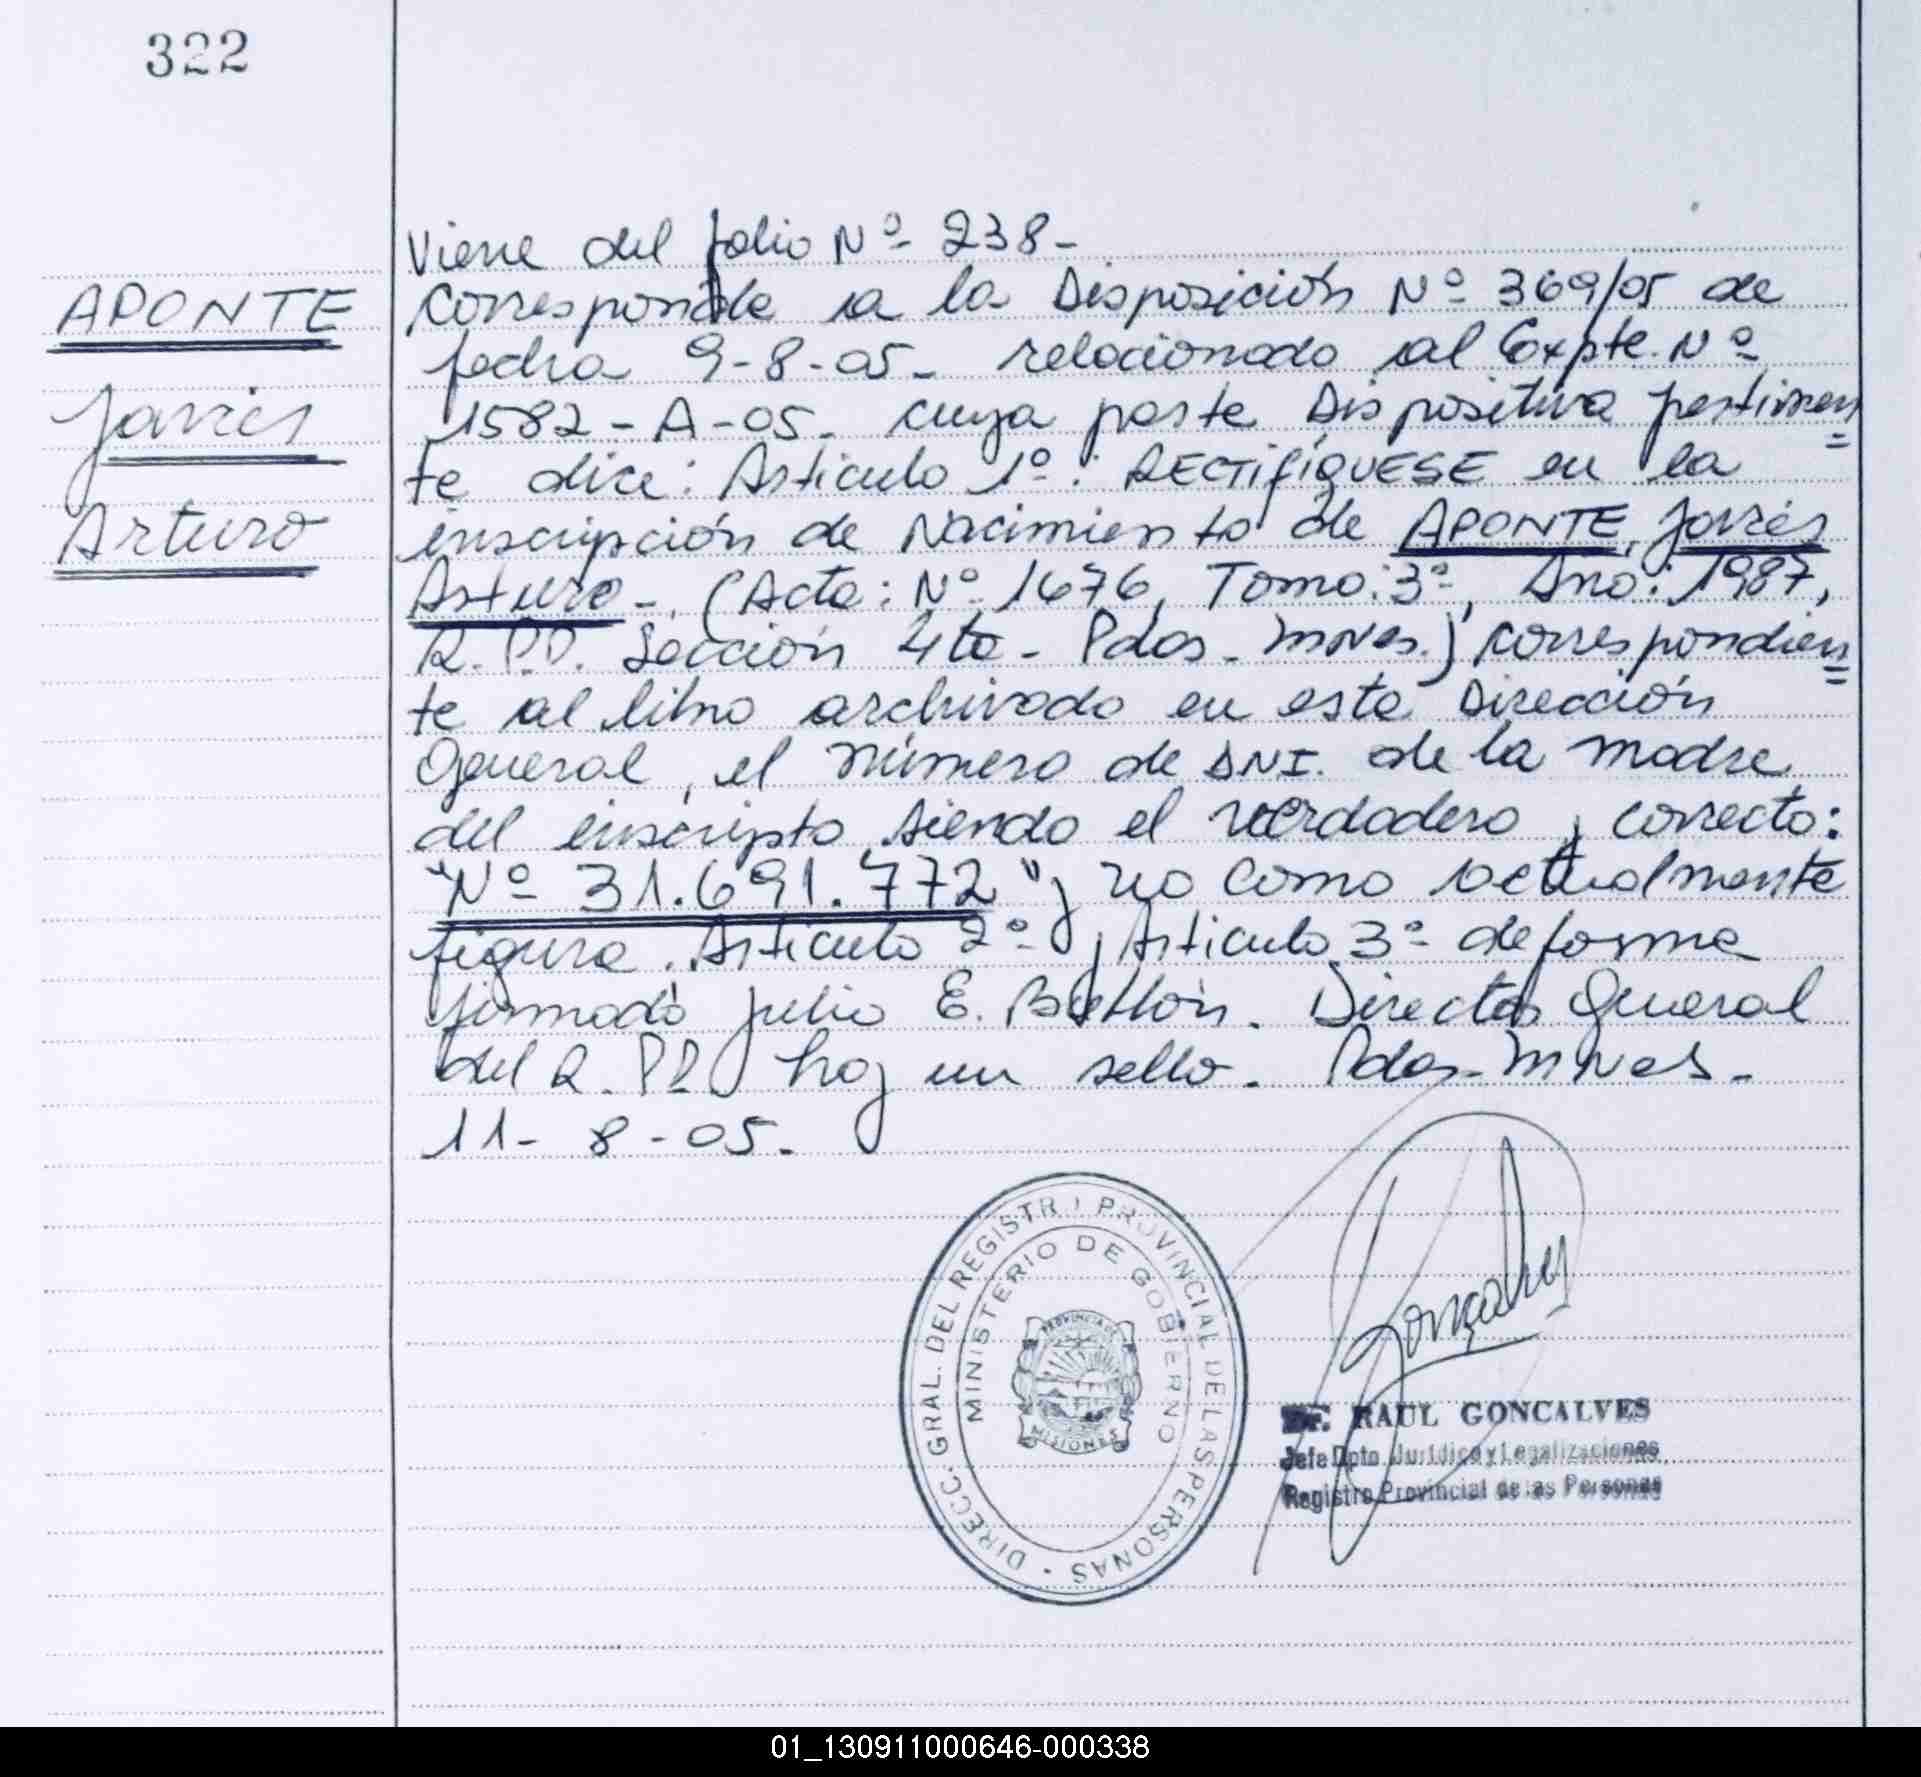 322
APONTE
Javier
Arturo
Viene del folio Nº 238-
Corresponde a la Disposición Nº 369/05 de
fecha 9-8-05- relacionado al Expte. Nº
1582-A-05- cuya parte Dispositiva pertinen
te dice: Articulo 1º: RECTIFÍQUESE en la
inscripción de Nacimiento de APONTE, Javier
Arturo-. (Acta: Nº 1676, Tomo: 3º, Año: 1987,
R.P.P. Sección 4ta- Pdas- Mnes.) correspondien
te al libro archivado en esta Dirección
General, el número de DNI. de la madre
del inscripto siendo el verdadero y correcto:
"Nº 31.691.772" y no como actualmente
figura. Articulo 2º y Articulo 3º de forma
firmado Julio E. 
Director General
del R.P.P. hay un sello. Pdas-Mnes.-
11-8-05-
DIRECC. GRAL. DEL REGISTR PROVINCIAL DE LAS PERSONAS
MINISTERIO DE GOBIERNO
PROVINCIA DE
MISIONES
Goncalves
Dr. RAUL GONCALVES
Jefe Dpto Jurídico y Legalizaciones
Registro Provincial de las Personas
01_130911000646-000338